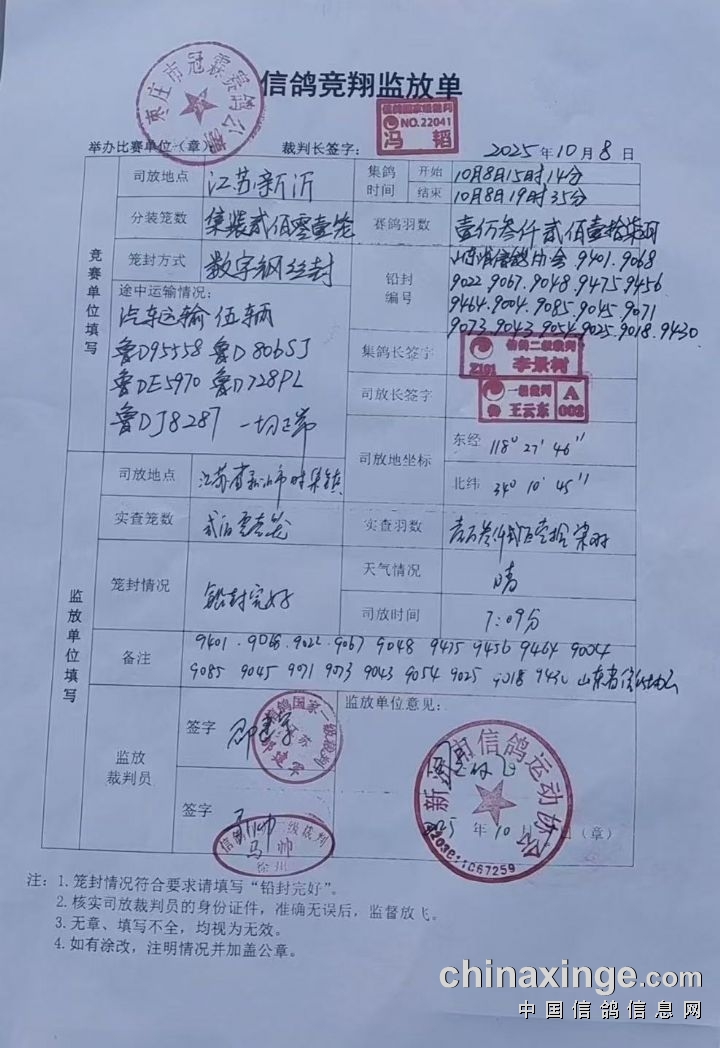 信鸽竞翔监放单
枣庄市冠霖赛鸽公棚
信鸽国家级裁判
NO.22041
冯 韬
举办比赛单位（章）
裁判长签字：
2025年10月8日
竞赛单位填写
司放地点 江苏新沂
集鸽时间 开始 10月8日15时14分
结束 10月8日19时35分
分装笼数 集装贰佰零壹笼
赛鸽羽数 壹万叁仟贰佰壹拾柒羽
笼封方式 数字钢丝封
铅封编号 信鸽协会 9401.9068
9022.9067.9048.9475.9456
9464.9004.9085.9045.9071
9073.9043.9054.9025.9018.9430
途中运输情况：
汽车运输 伍辆
鲁D95558 鲁D806SJ
鲁DE5970 鲁D728PL
鲁DJ8287 一切正常
集鸽长签字 信鸽二级裁判 Z101 李景树
司放长签字 一级裁判 王云东 A 002
司放地坐标 东经 118° 27′ 46″
北纬 34° 10′ 45″
监放单位填写
司放地点 江苏省新沂市时集镇
实查笼数 贰佰零壹笼
实查羽数 壹万叁仟贰佰壹拾柒羽
笼封情况 铅封完好
天气情况 晴
司放时间 7:09分
备注 9401.9068.9022.9067 9048 9475 9456 9464 9004
9085 9045 9071 9073 9043 9054 9025 9018 9430 山东省信鸽协会
监放裁判员
签字 邵建军
信鸽国家一级裁判
江苏
签字 马帅
信鸽一级裁判
马帅
徐州
监放单位意见：
新沂市信鸽运动协会
2025年10月 日（章）
注：1. 笼封情况符合要求请填写“铅封完好”。
2. 核实司放裁判员的身份证件，准确无误后，监督放飞。
3. 无章、填写不全，均视为无效。
4. 如有涂改，注明情况并加盖公章。
chinaxinge.com
中国信鸽信息网